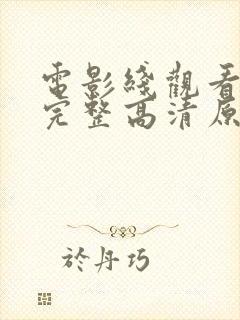 電影綫觀看
完整高清原
於丹巧